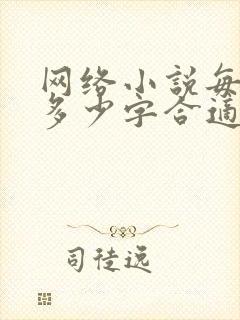 网络小说每
多少字合适
司徒远